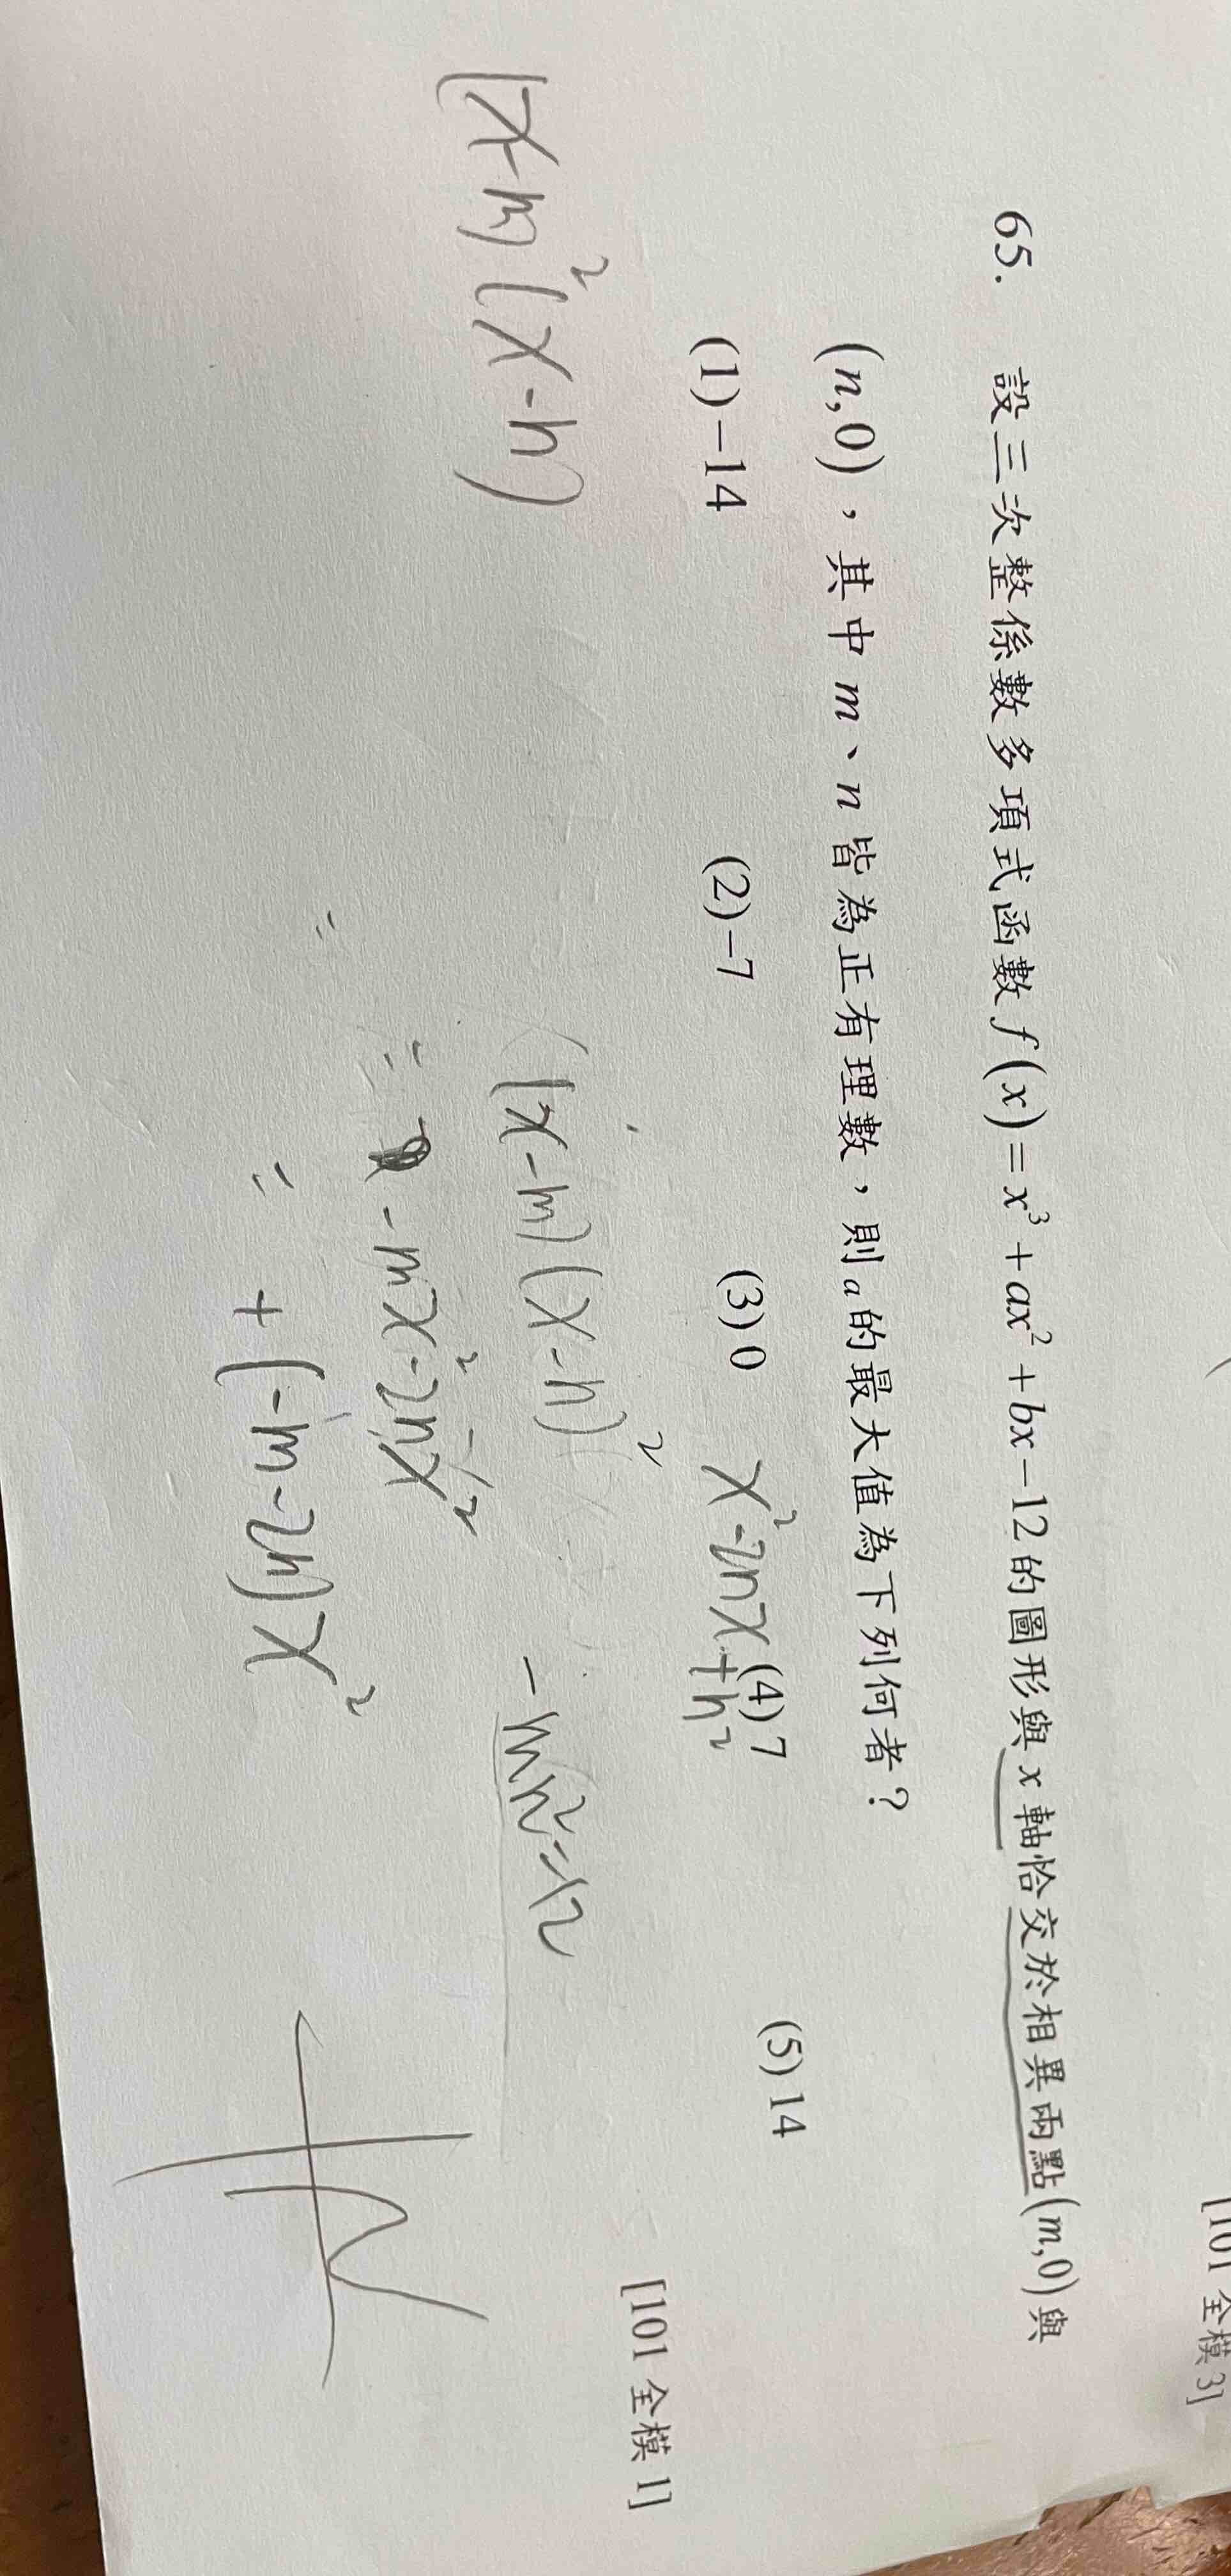 [101 全模 3]
65. 設三次整係數多項式函數 f(x)=x³+ax²+bx−12 的圖形與 x 軸恰交於相異兩點(m,0)與
(n,0)，其中 m、n 皆為正有理數，則 a 的最大值為下列何者？
(1)−14 (2)−7 (3)0 (4)7 (5)14
[101 全模 1]
x²-2nx+n²
(x-m)²(x-n)
(x-m)(x-n)²
-mn²=-12
= -mx²-2nx²
= +(-m-2n)x²